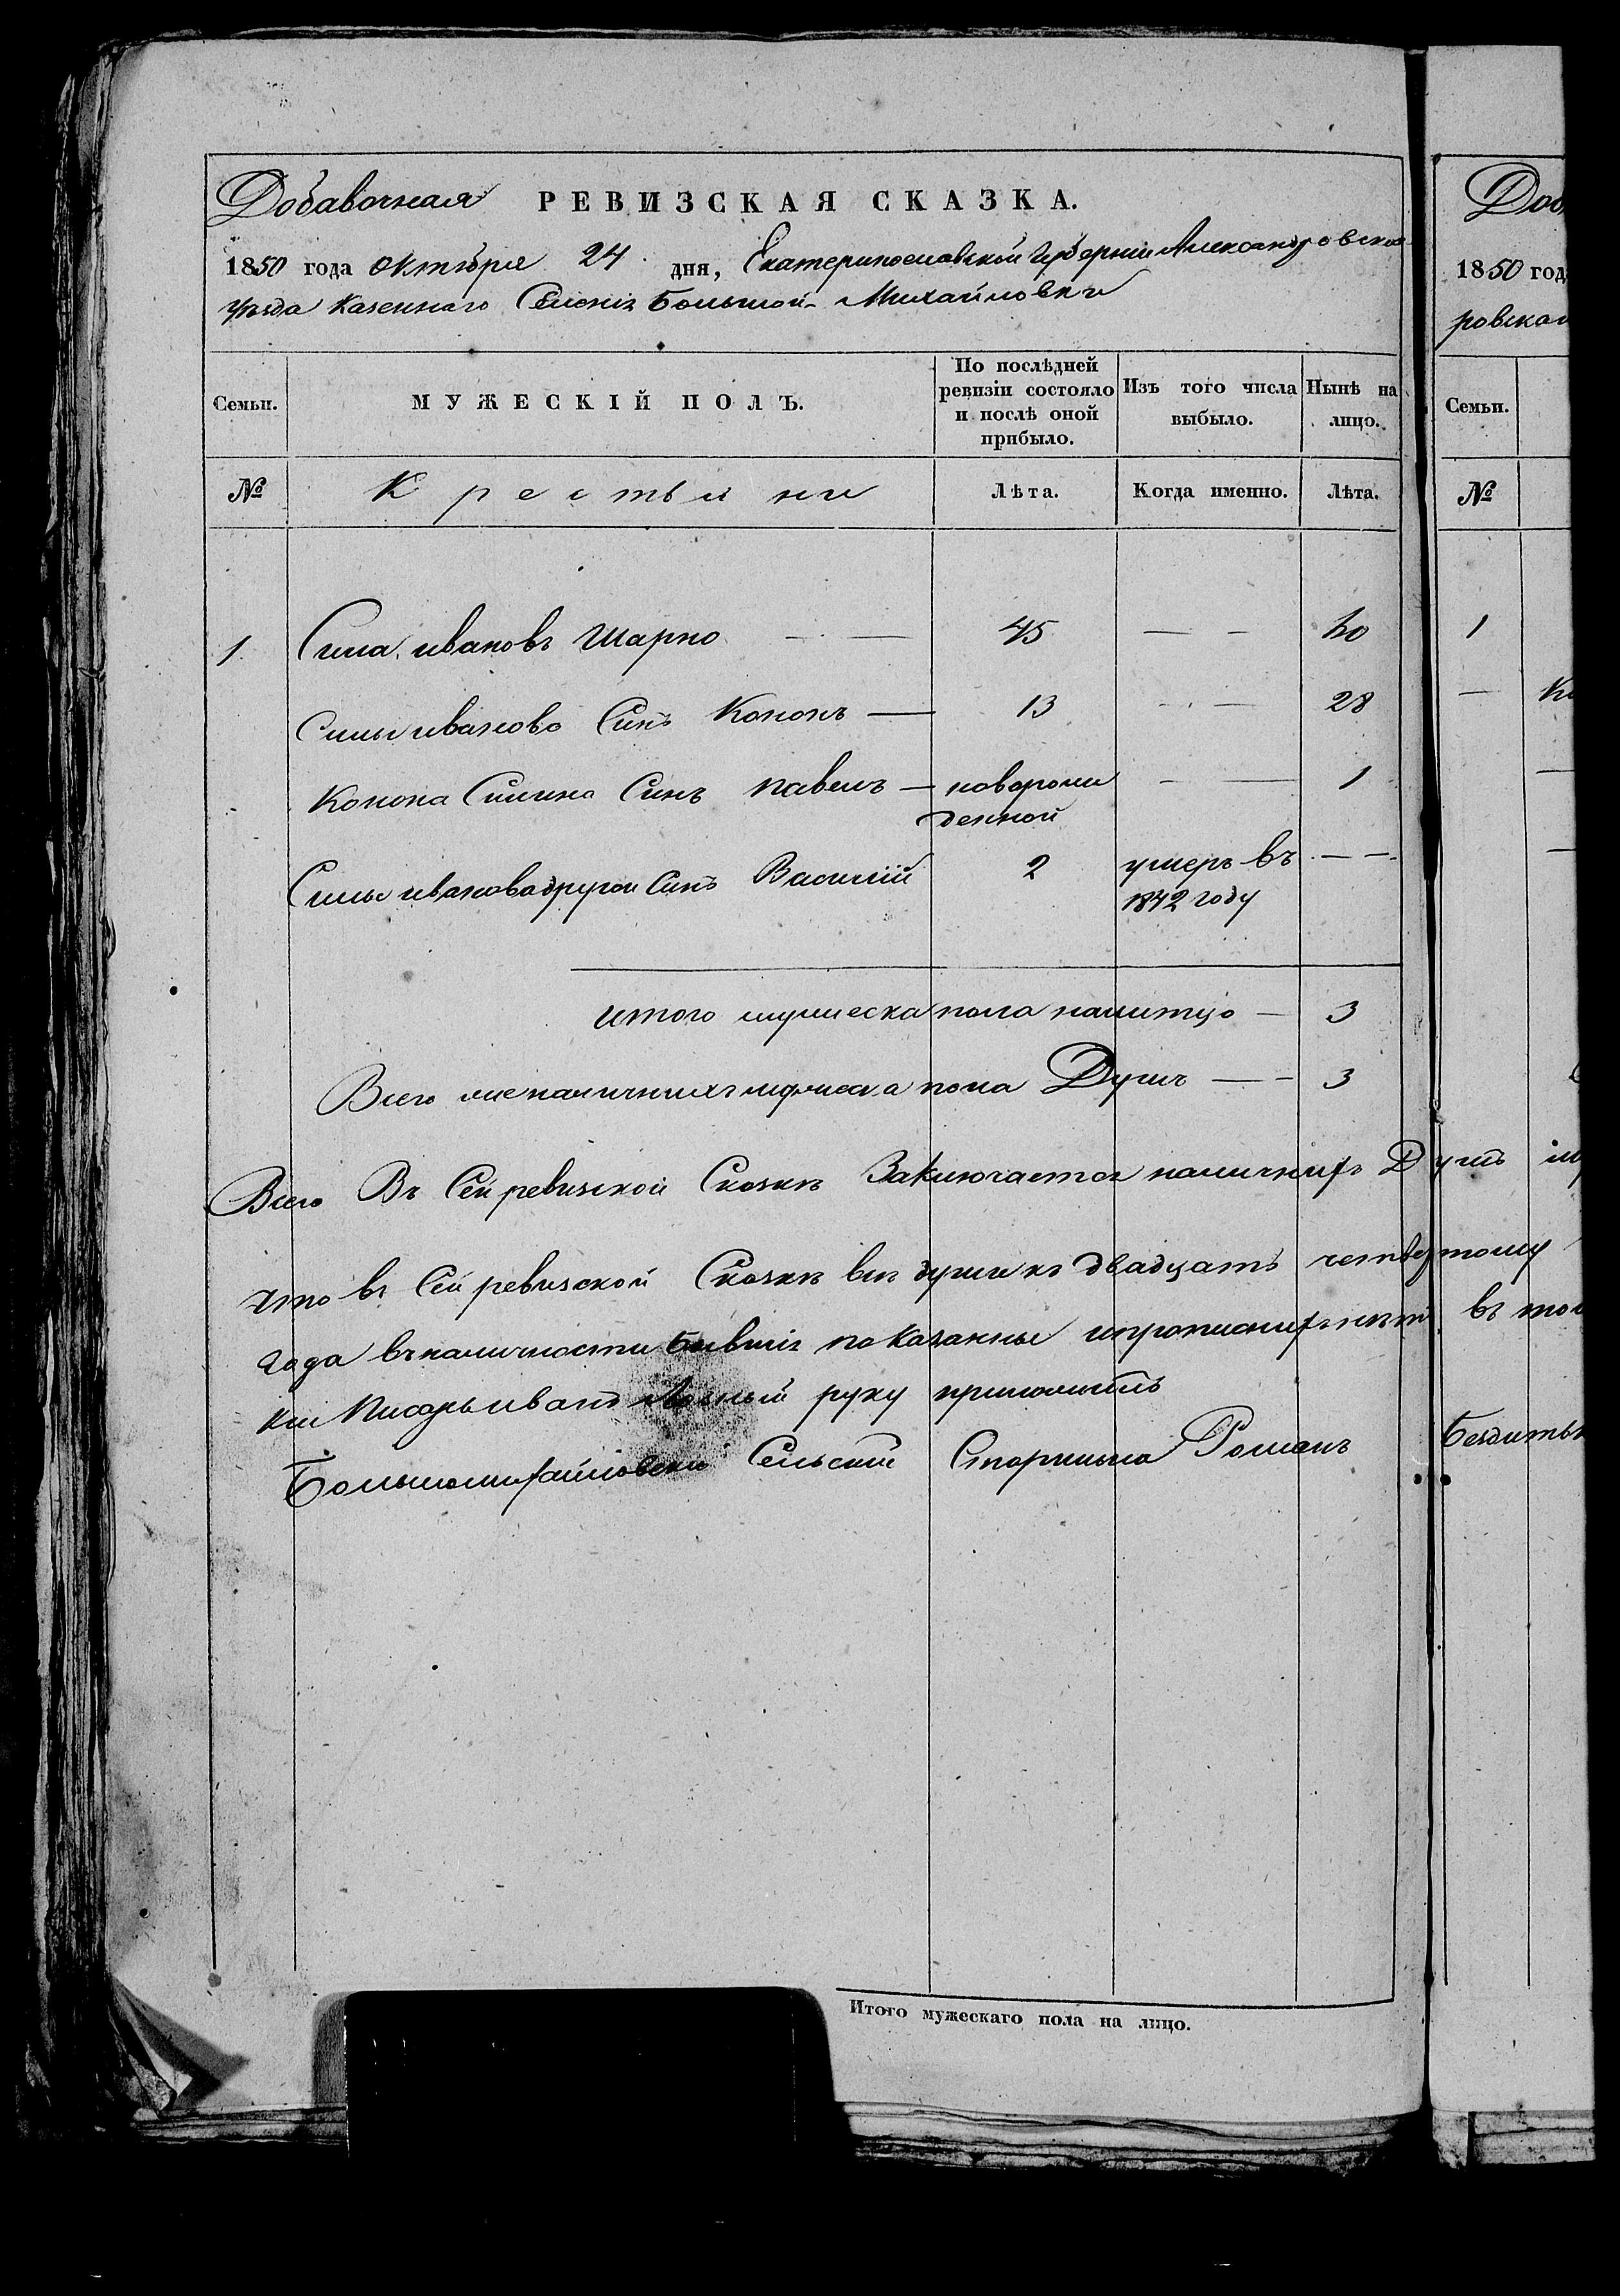 Добавочная РЕВИЗСКАЯ СКАЗКА.
1850 года Октября 24 дня, Екатеринославской Губернии Александровского
Уезда казеннаго Селенія Большой Михайловки
Семьи.
МУЖЕСКІЙ ПОЛЪ.
По послѣдней ревизіи состояло и послѣ оной прибыло.
Изъ того числа выбыло.
Нынѣ на лицо.
№ Крестьяни Лѣта. Когда именно. Лѣта.
1 Сила ивановъ Шарко — 45 — 60
Силы иванова Синъ Кононъ — 13 — 28
Конона Силина Синъ павелъ — новорож — 1
денной
Силы иванова другои Синъ Василій 2 умеръ въ — —
1842 году
итого мужеска пола налитцо — 3
Всего наличнихъ мужеска пола Душъ — 3
Всего Въ Сей ревизской Сказкѣ Заключается наличнихъ Душъ
Что въ Сей ревизской Сказкѣ всѣ души къ двадцать четвертому
года въ наличности бывшіе показанны и прописнихъ нѣтъ въ том
кіи Писарь иванъ руку приложилъ
Большомихайловскій Сельскій Старшина Романъ
Доб
1850 год
ровскаг
Семьи.
№
1